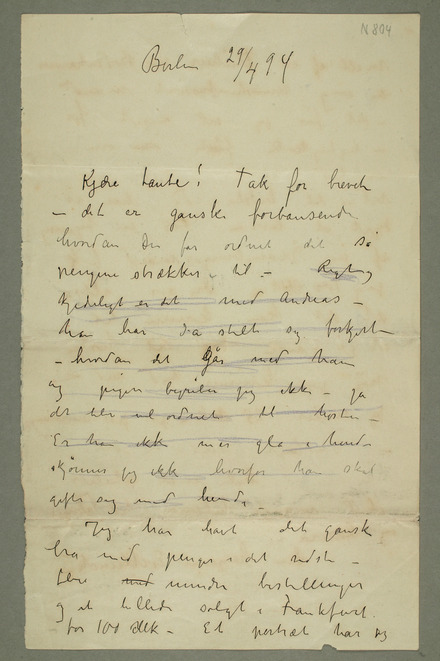 N 804
Berlin 29/4 94
Kjære tante! Tak for brevet
– det er ganske forbausende
hvordan Du får ordnet det så
pengene strækker til. – Rigtig
kjedeligt er det med Andreas –
han har da stelt sig forkjert
– hvordan det går med ham
og pigen begriber jeg ikke – ja
det blir vel ordnet til høsten –
Er han ikke mer gla i hende
skjønner jeg ikke hvorfor han skal
gifte sig med hende.
Jeg har havt det ganske
bra med penger i det sidste –
flere mindre bestillinger
og et billede solgt i Frankfurt.
for 100 Mk – Et portræt har jeg